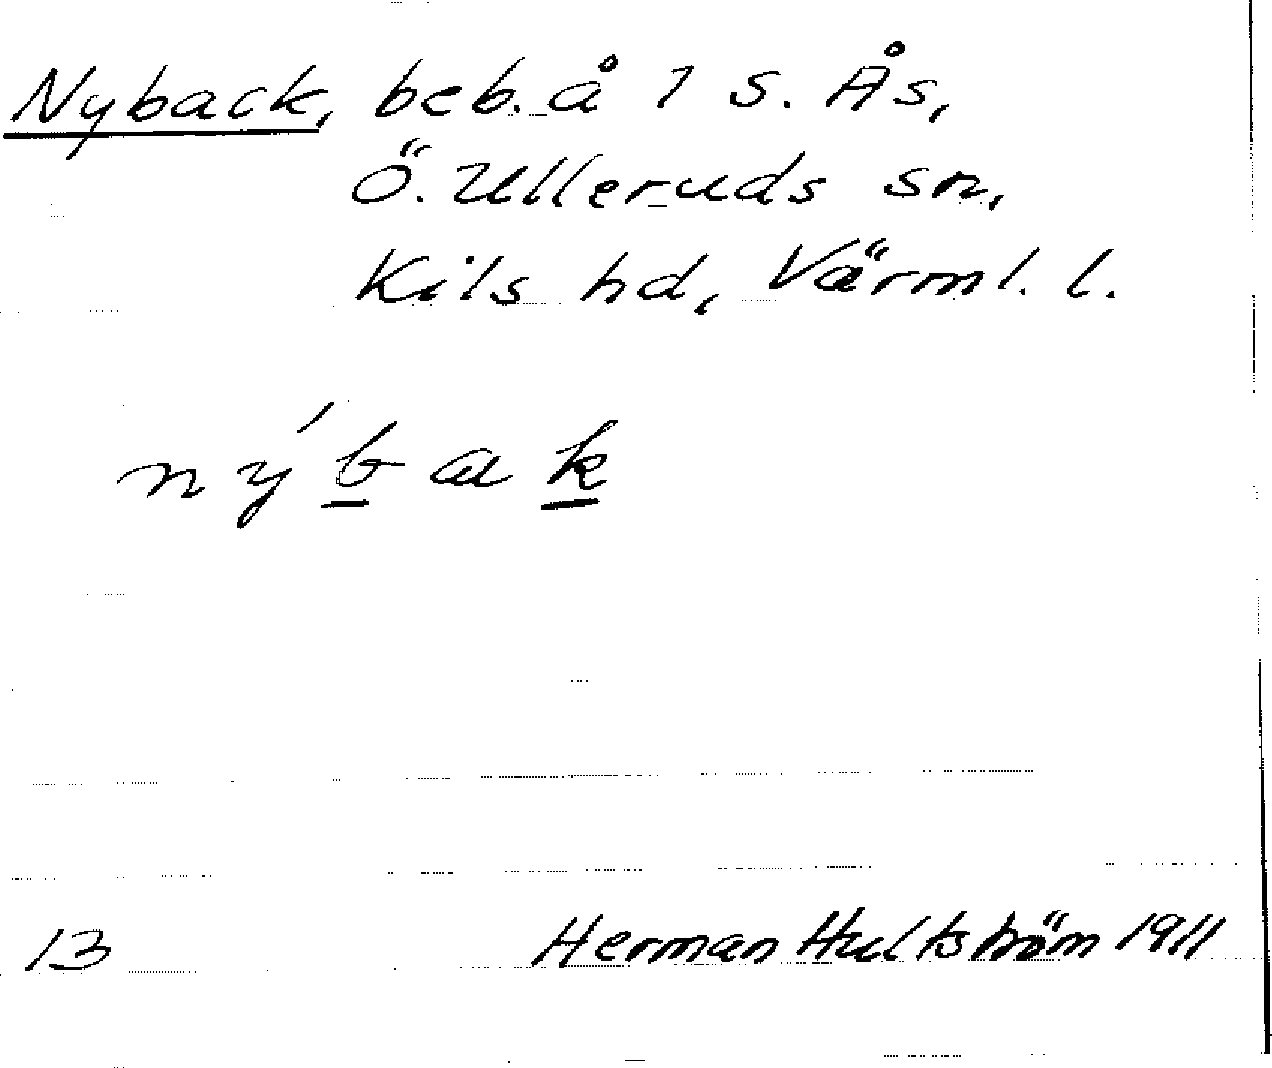 Nyback, beb. å 1 S. Ås,
Ö. Ulleruds sn,
Kils hd, Värml. l.
nýbak
13 Herman Hultström 1911